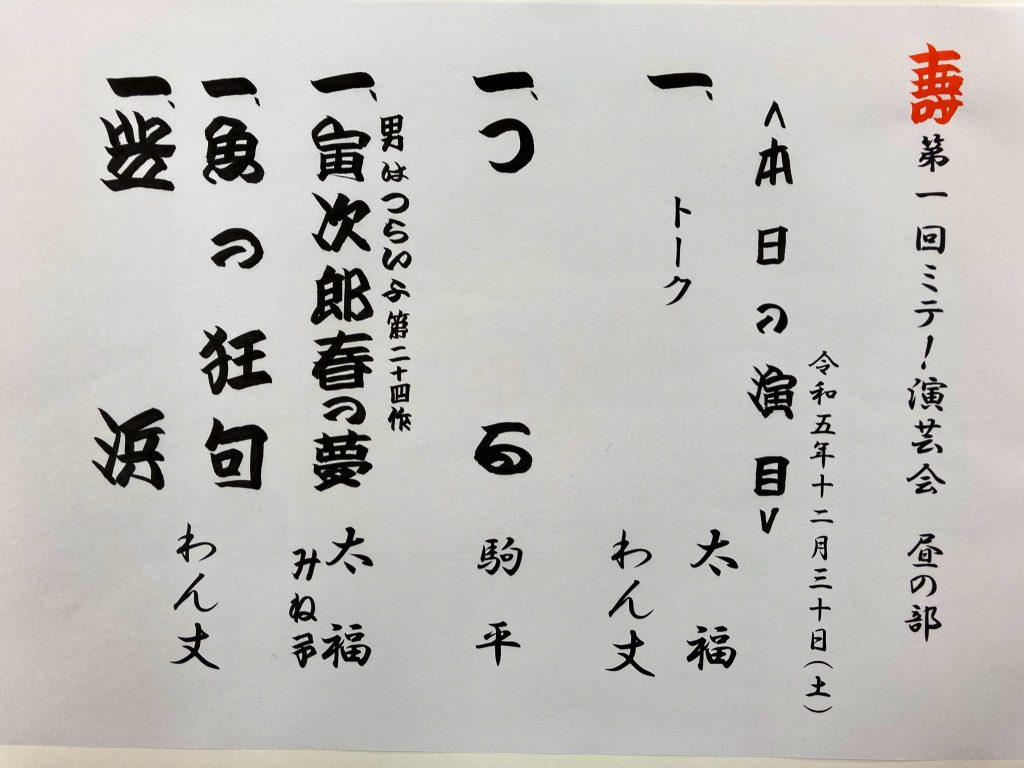 壽 第一回ミテ!演芸会 昼の部
令和五年十二月三十日(土)
<本日の演目>
一、トーク 太福 わんだ丈
一、つる 駒平
男はつらいよ第二十四作
一、寅次郎春の夢 太福 みね子
一、魚の狂句
一、芝浜
わん丈